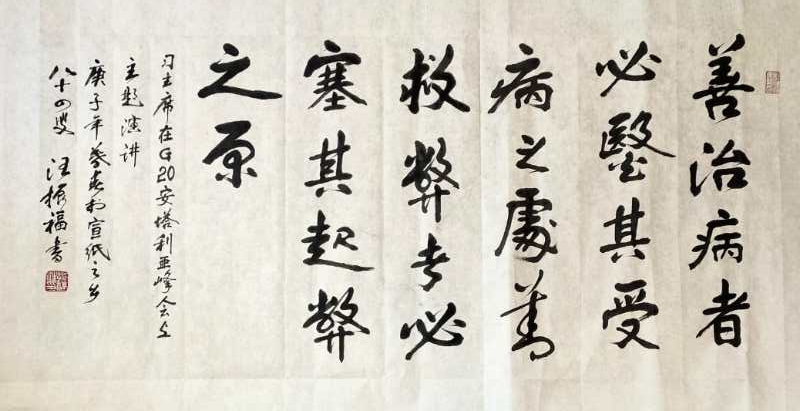 善治病者
必醫其受
病之處善
救弊者必
塞其起弊
之原
习主席在G20安塔利亚峰会上
主题演讲
庚子年暮春於宣纸之乡
八十四叟 汪振福書